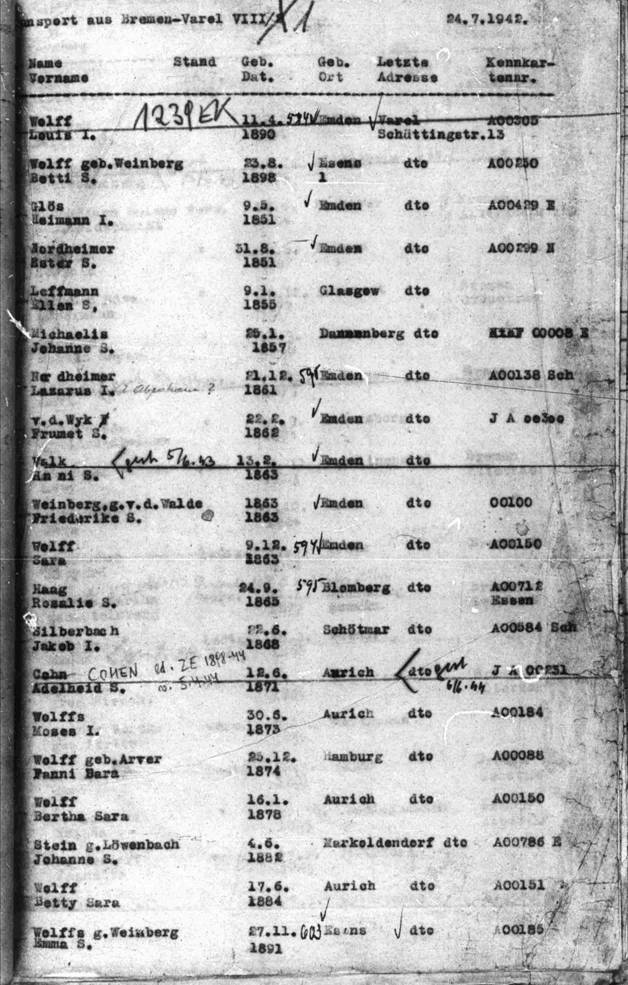 nsport aus Bremen-Varel VIII/1 24.7.1942.
Name Stand Geb. Geb. Letzte Kennkar-
Vorname Dat. Ort Adresse tennr.
Wolff 1239EK 11.4. 594 Emden Varel A00305
Louis I. 1890 Schüttingstr.13
Wolff geb.Weinberg 23.8. Esens dto A00250
Betti S. 1898 1
Glös 9.5. Emden dto A00429 E
Heimann I. 1851
Nordheimer 31.8. Emden dto A00299 N
Ester S. 1851
Leffmann 9.1. Glasgow dto
Ellen S. 1855
Michaelis 25.1. Dannenberg dto 00008 E
Johanne S. 1857
Nordheimer 21.12. 594 Emden dto A00138 Sch
Lazarus I. 1861
v.d.Wyk 22.2. Emden dto J A oo3oo
Frumet S. 1862
Valk gest 5/6.43 13.2. Emden dto
An ni S. 1863
Weinberg.g.v.d.Walde 1863 Emden dto 00100
Friedurike S. 1863
Wolff 9.12. 594 Emden dto A00150
Sara 1863
Haag 24.9. 595 Blomberg dto A00712
Rosalie S. 1865 Essen
Silberbach 22.6. Schötmar dto A00584 Sch
Jakob I. 1868
Cahn COHEN 12.6. Aurich dto gest J A 00231
Adelheid S. 1871 6/6.44
Wolffs 30.6. Aurich dto A00184
Moses I. 1873
Wolff geb.Arver 25.12. Hamburg dto A00088
Fanni Sara 1874
Wolff 16.1. Aurich dto A00150
Bertha Sara 1878
Stein g.Löwenbach 4.6. Markoldendorf dto A00786 E
Johanne S. 1882
Wolff 17.6. Aurich dto A00151
Betty Sara 1884
Wolffs g.Weinberg 27.11. 603 Esens dto A00185
Emma S. 1891